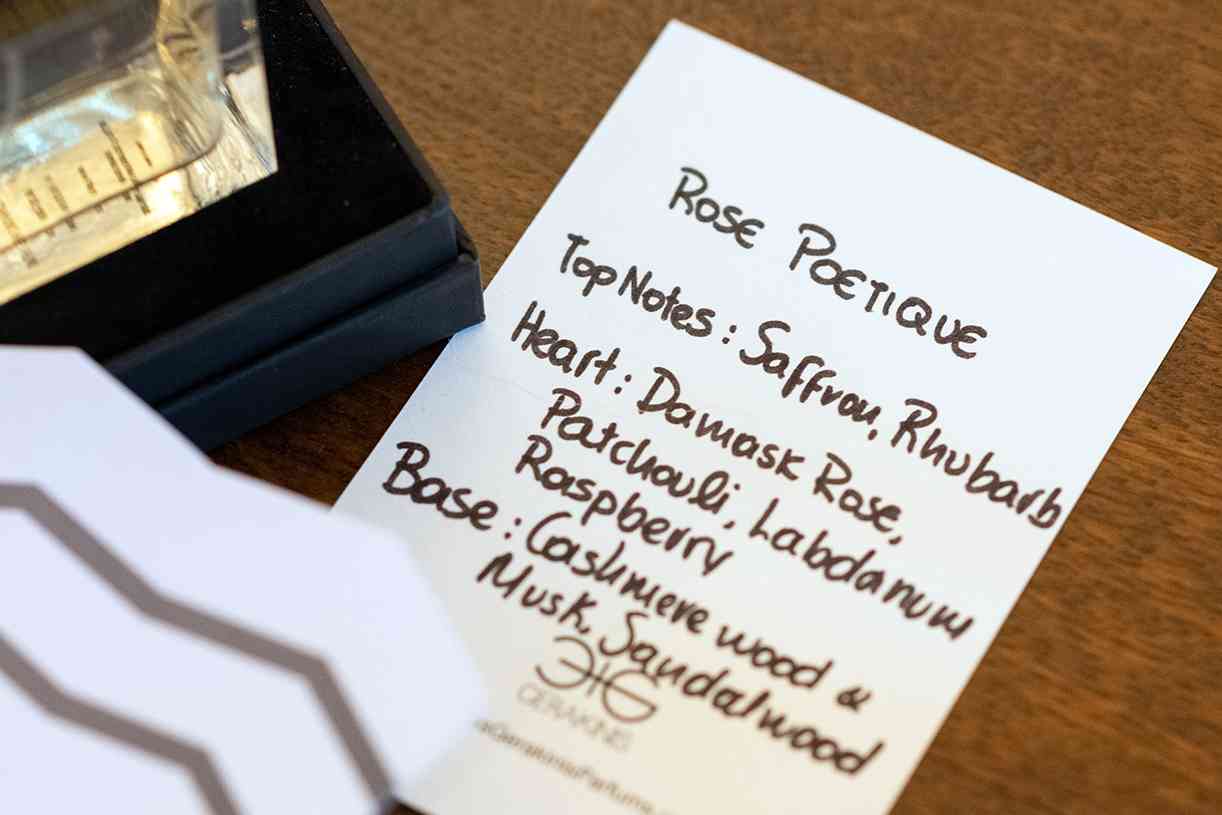 Rose Poetique
Top Notes: Saffron, Rhubarb
Heart: Damask Rose,
Patchouli, Labdanum
Raspberry
Base: Cashmere wood &
Musk, Sandalwood
GERAKINIS